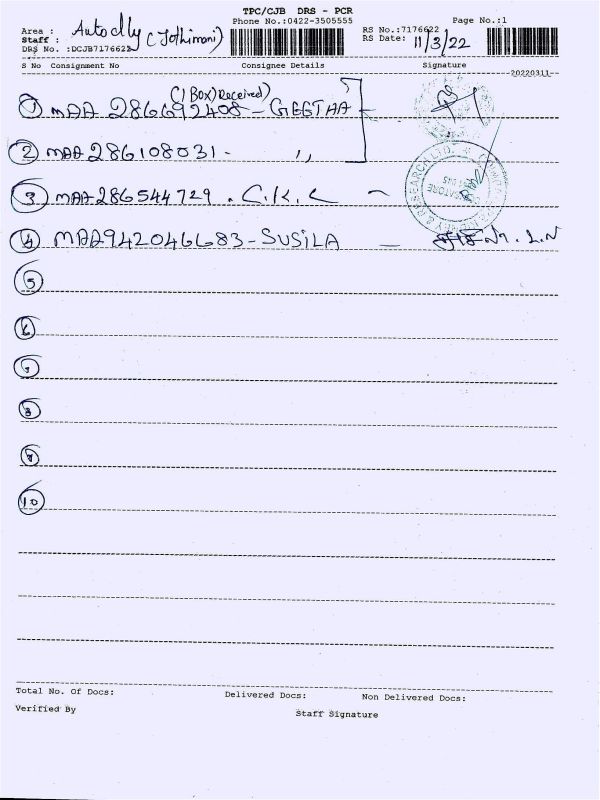 TPC/CJB DRS - PCR
Phone No.:0422-3505555
Page No.:1
Area : Auto dly (Jothimani)
Staff :
DRS No. :DCJB7176622
RS No.:7176622
RS Date: 11/3/22
S No Consignment No Consignee Details Signature
20220311
(1 Box) Received)
1 MAA 286692408 - GEETHA
2 MAA 286108031 - ,,
3 MAA 286544729 . C.K.C
4 MAA942046683 - SUSILA - சுசிலா . L.N
5
6
7
8
9
10
Total No. Of Docs: Delivered Docs: Non Delivered Docs:
Verified By Staff Signature